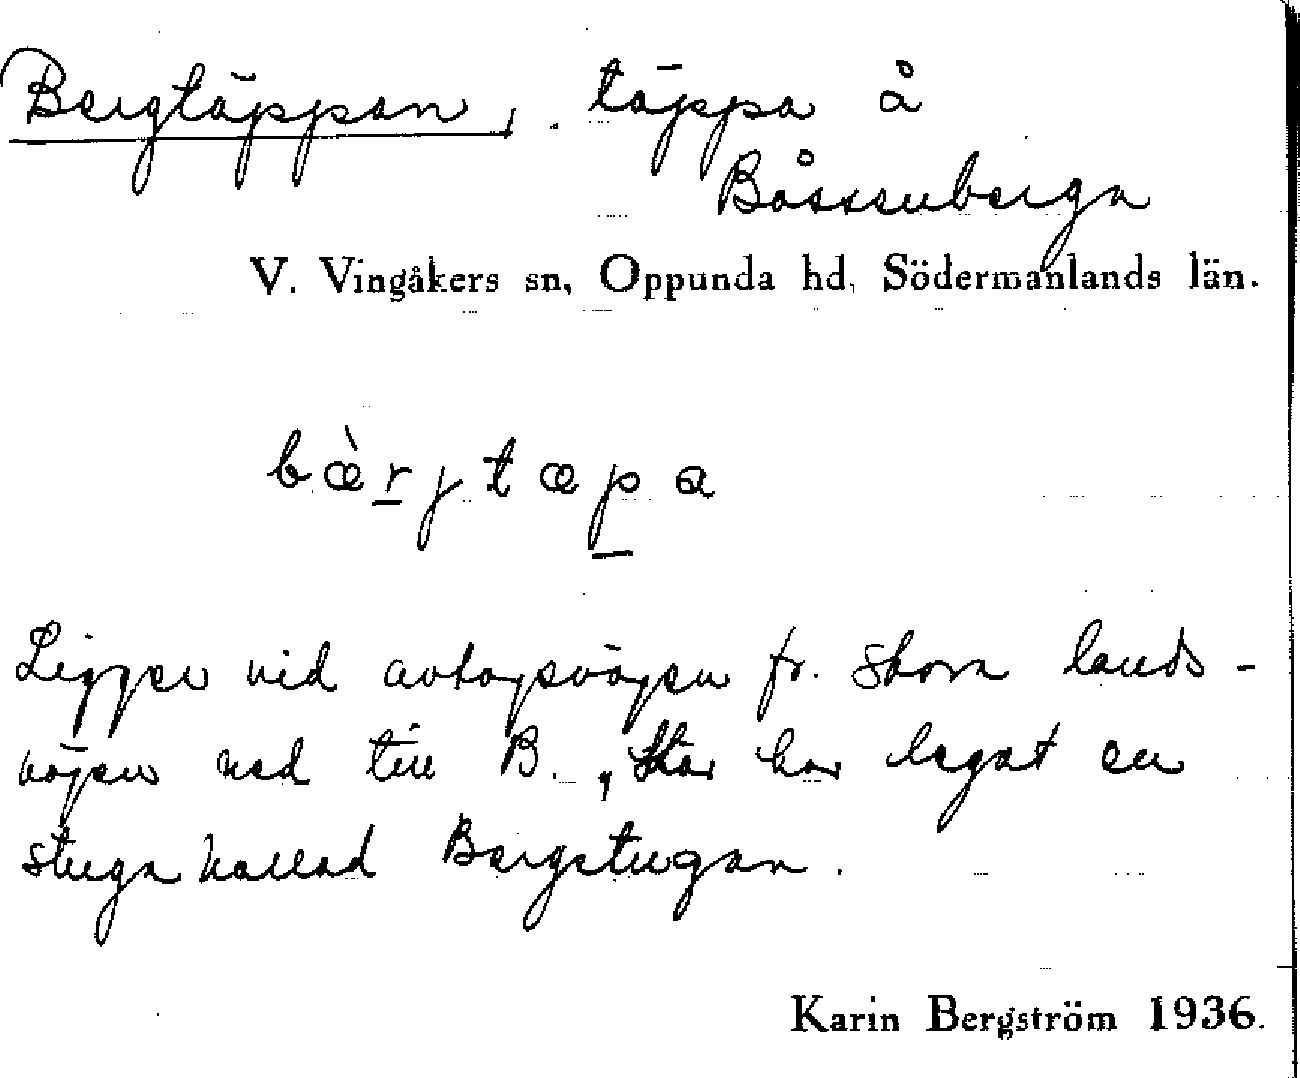 Bergtäppan, täppa å
Båsenberga
V. Vingåkers sn, Oppunda hd, Södermanlands län.
bæ̀r̲jtæp̲a
Ligger vid avtagsvägen fr. stora lands-
vägen ned till B. Här har legat en
stuga kallad Bergstugan.
Karin Bergström 1936.